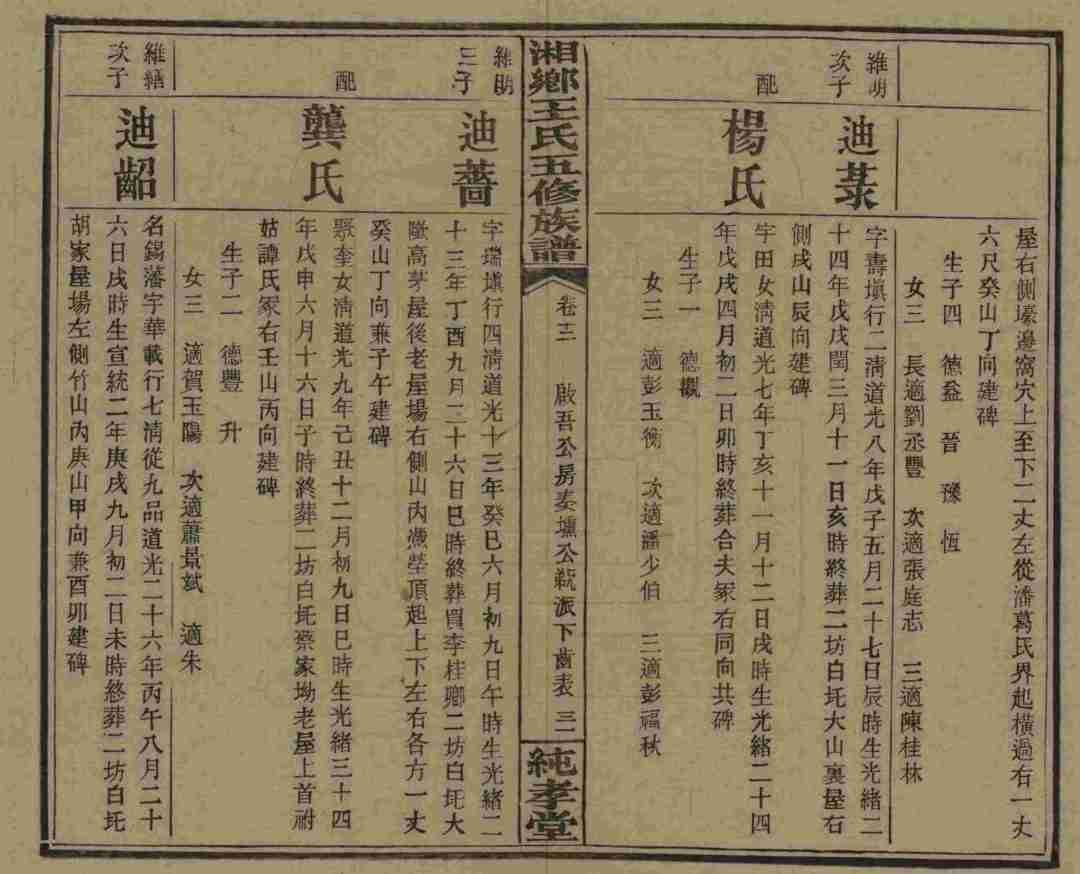 屋右側壕邊窩穴上至下二丈左從潘葛氏界起橫過右一丈
六尺癸山丁向建碑
生子四 德益 晉 豫 恆
女三 長適劉丞豐 次適張庭志 三適陳桂林
維明次子
迪菉
字壽塡行二清道光八年戊子五月二十七日辰時生光緒二
十四年戊戌閏三月十一日亥時終葬二坊白圫大山裏屋右
側戌山辰向建碑
配
楊氏
宇田女清道光七年丁亥十一月十二日戌時生光緒二十四
年戊戌四月初二日卯時終葬合夫冢右同向共碑
生子一 德觀
女三 適彭玉衡 次適潘少伯 三適彭福秋
湘鄉王氏五修族譜
卷三 啟吾公房 公 派下齒表 三
純孝堂
維明三子
迪薔
字瑞塡行四清道光十三年癸巳六月初九日午時生光緒二
十三年丁酉九月二十六日巳時終葬買李桂卿二坊白圫大
隴高茅屋後老屋場右側山內憑塋頂起上下左右各方一丈
癸山丁向兼子午建碑
配
龔氏
聚奎女清道光九年己丑十二月初九日巳時生光緒三十四
年戊申六月十六日子時終葬二坊白圫蔡家坳老屋上首祔
姑譚氏冢右壬山丙向建碑
生子二 德豐 升
女三 適賀玉陽 次適蕭景斌 適朱
維 次子
迪韶
名錫藩字華載行七清從九品道光二十六年丙午八月二十
六日戌時生宣統二年庚戌九月初二日未時終葬二坊白圫
胡家屋場左側竹山內庚山甲向兼酉卯建碑